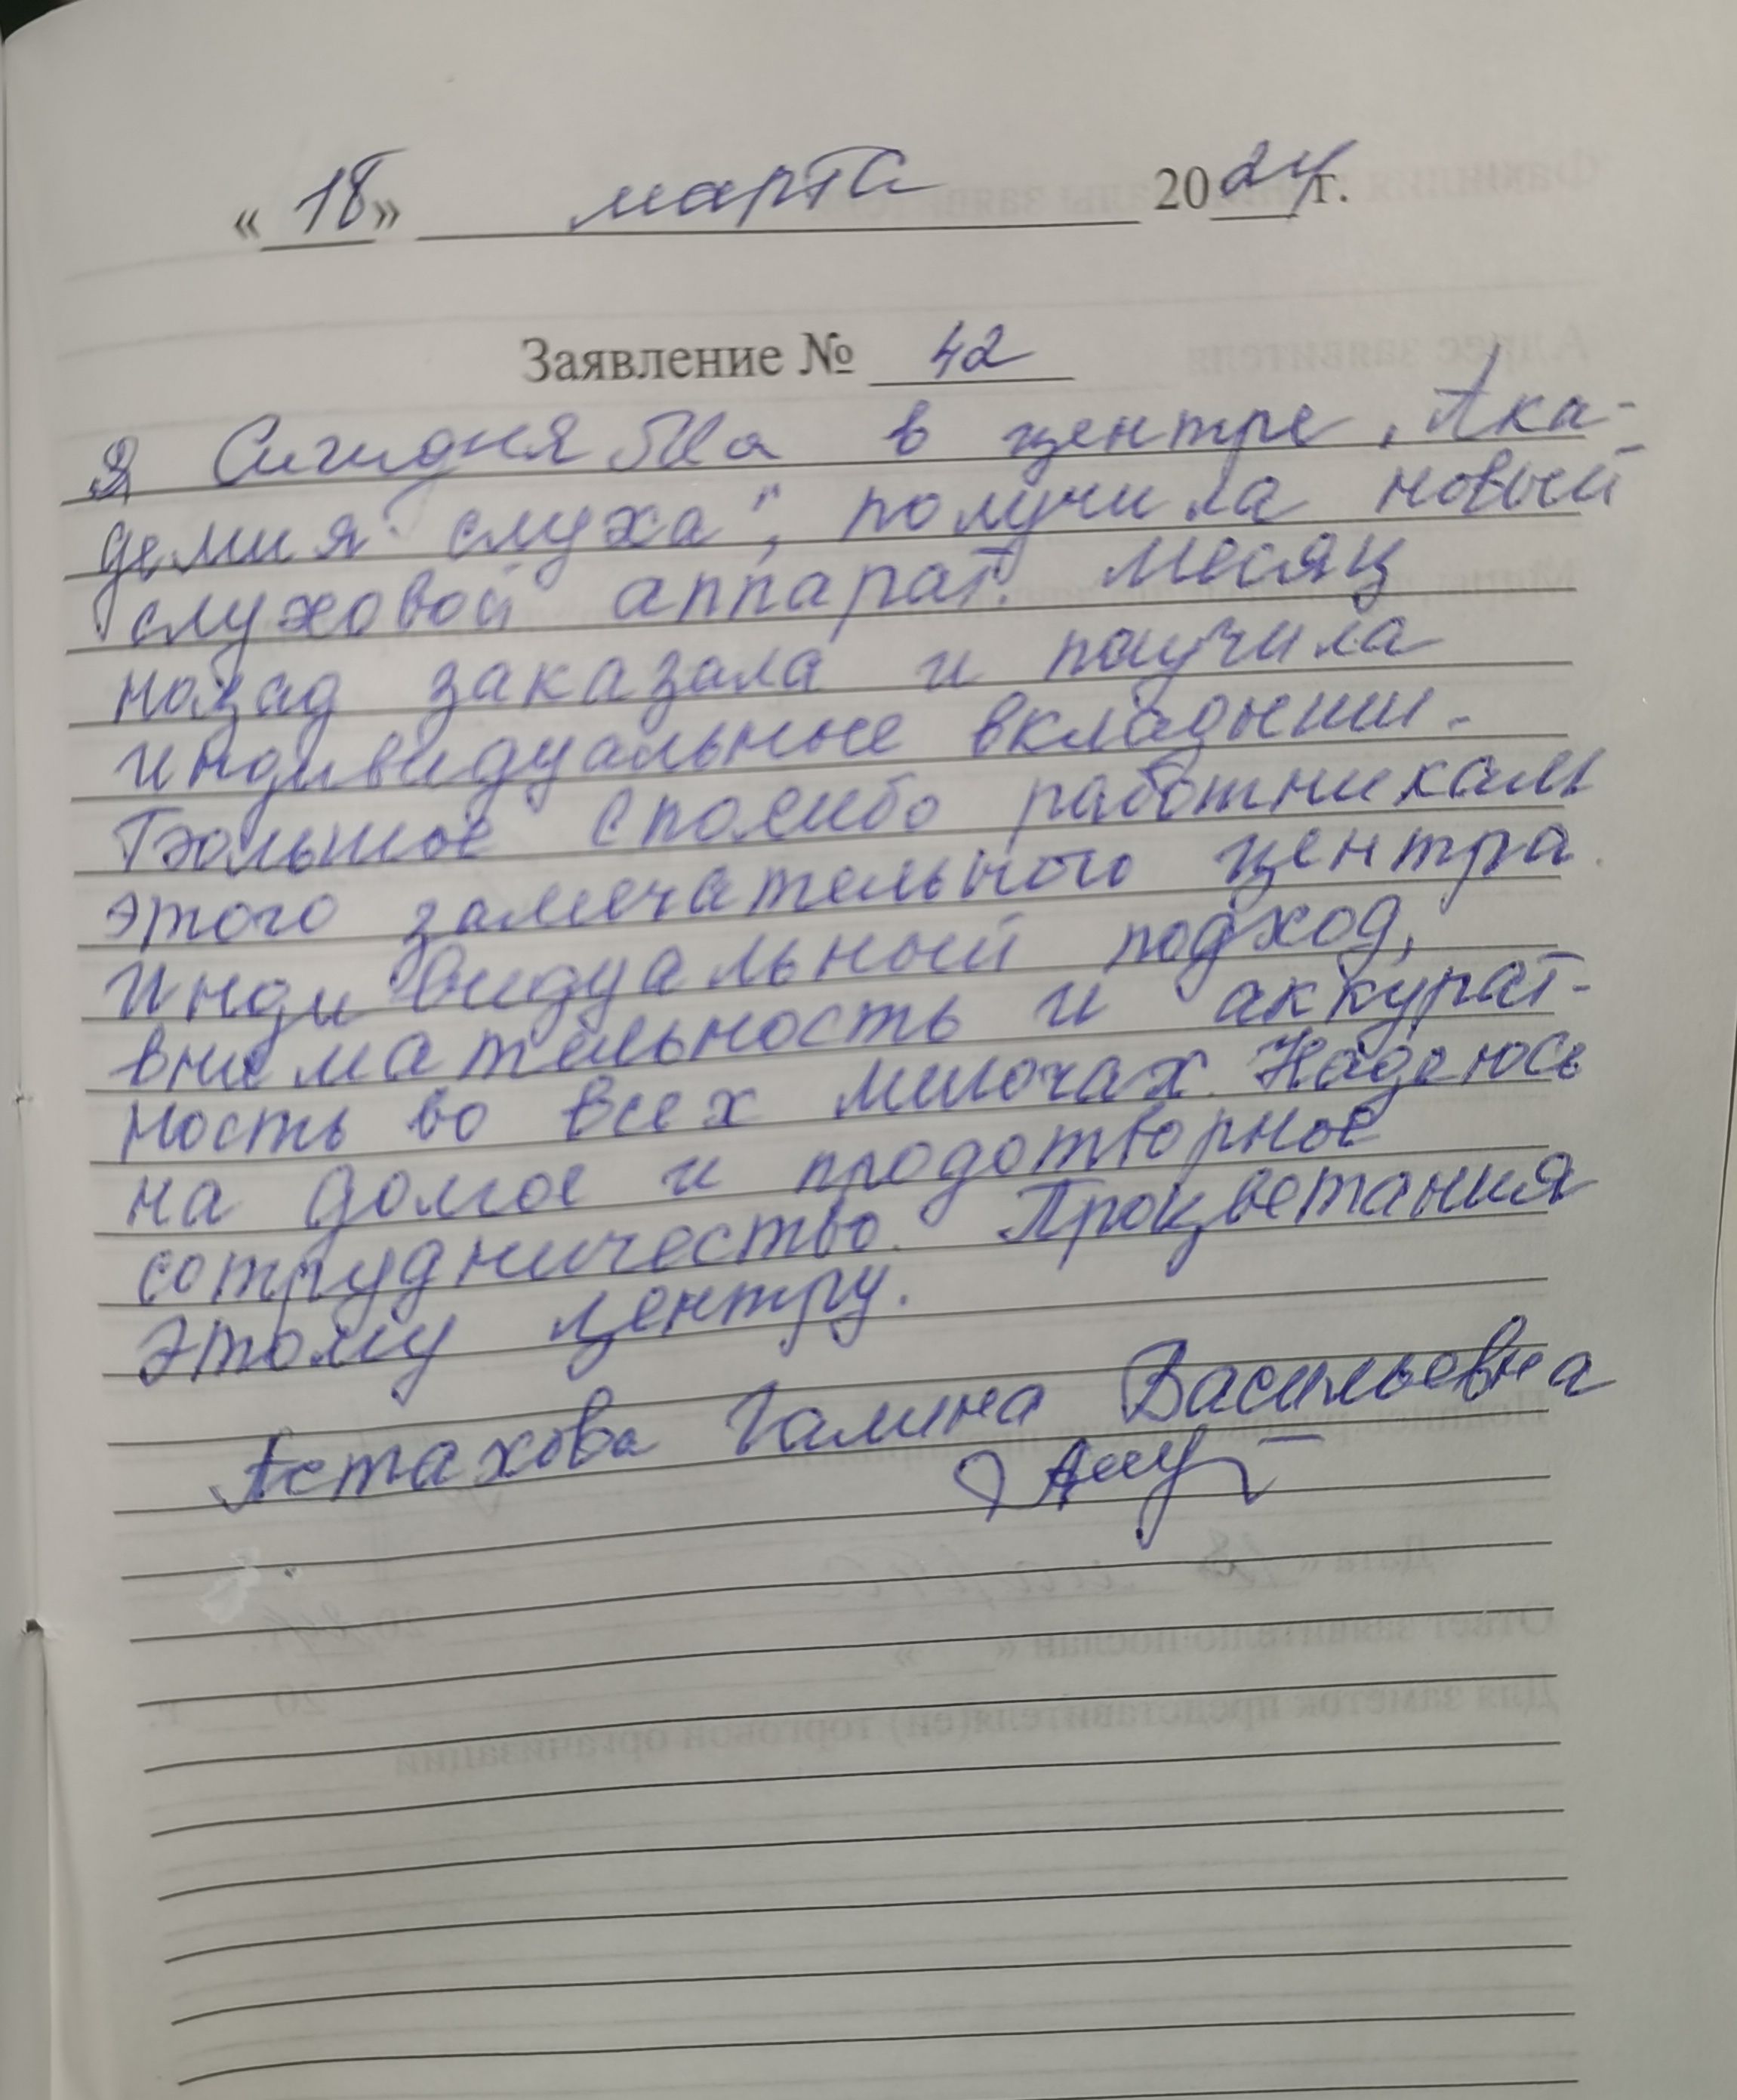 «18» марта 2024г.
Заявление № 42
Я Сегодня была в центре „Ака-
демия слуха", получила новый
слуховой аппарат. Месяц
назад заказала и получила
индивидуальные вкладыши.
Большое спасибо работникам
этого замечательного центра.
Индивидуальный подход,
внимательность и аккурат-
ность во всех мелочах. Надеюсь
на долгое и плодотворное
сотрудничество. Процветания
этому центру.
Астахова Галина Васильевна